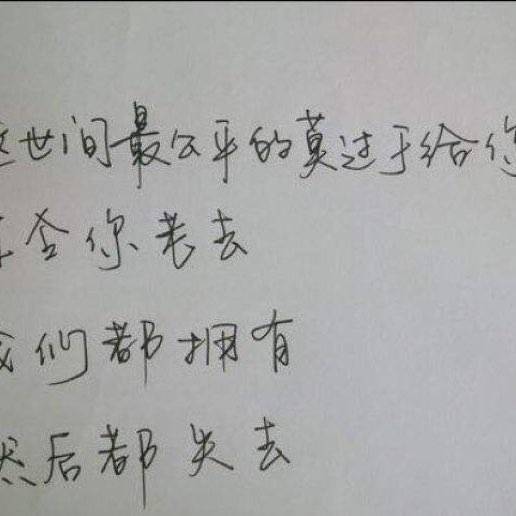 这世间最公平的莫过于给你
你老去
我们都拥有
然后都失去